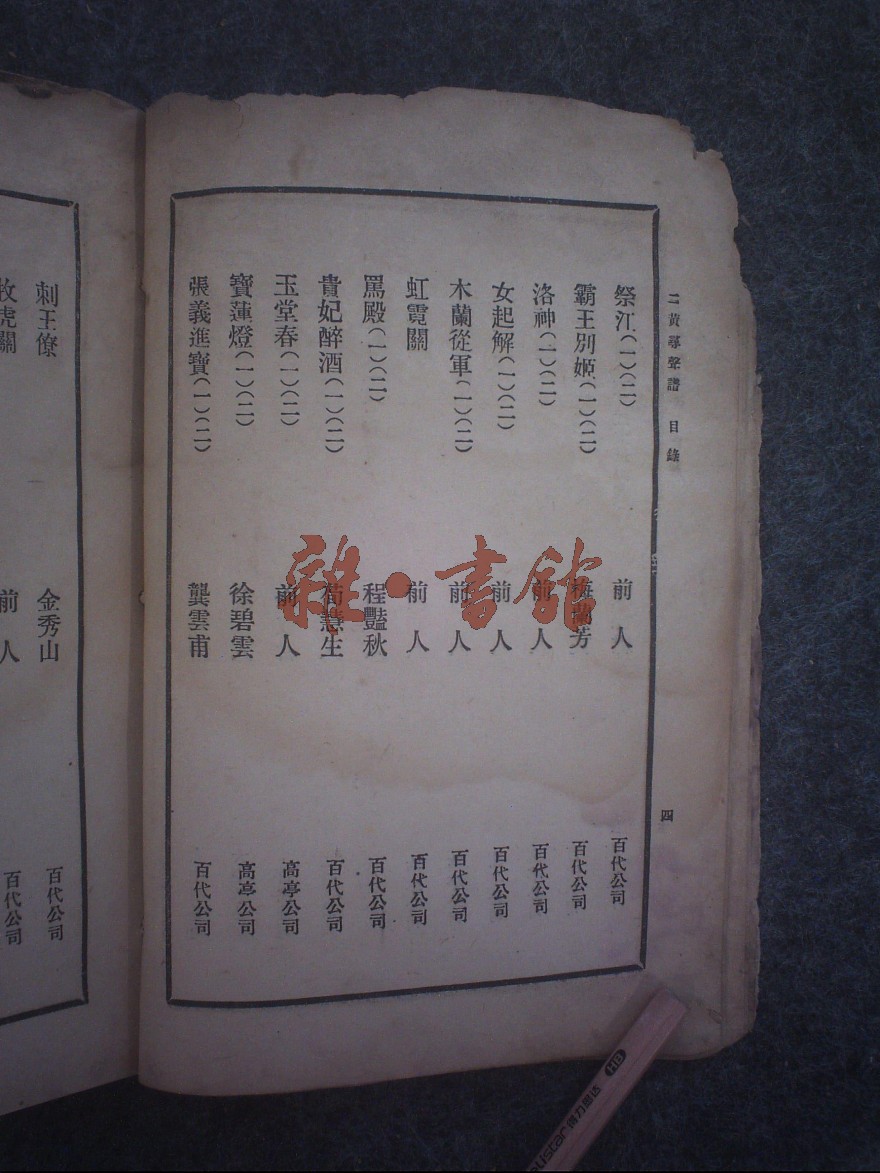 二黃尋聲譜 目錄 四
祭江(一)(二) 前人 百代公司
霸王別姬(一)(二) 梅蘭芳 百代公司
洛神(一)(二) 前人 百代公司
女起解(一)(二) 前人 百代公司
木蘭從軍(一)(二) 前人 百代公司
虹霓關 前人 百代公司
罵殿(一)(二) 程豔秋 百代公司
貴妃醉酒(一)(二) 荀慧生 百代公司
玉堂春(一)(二) 前人 高亭公司
寶蓮燈(一)(二) 徐碧雲 高亭公司
張義進寶(一)(二) 龔雲甫 百代公司
刺王僚 金秀山 百代公司
牧虎關 前人 百代公司
雜·書館
HB 得力